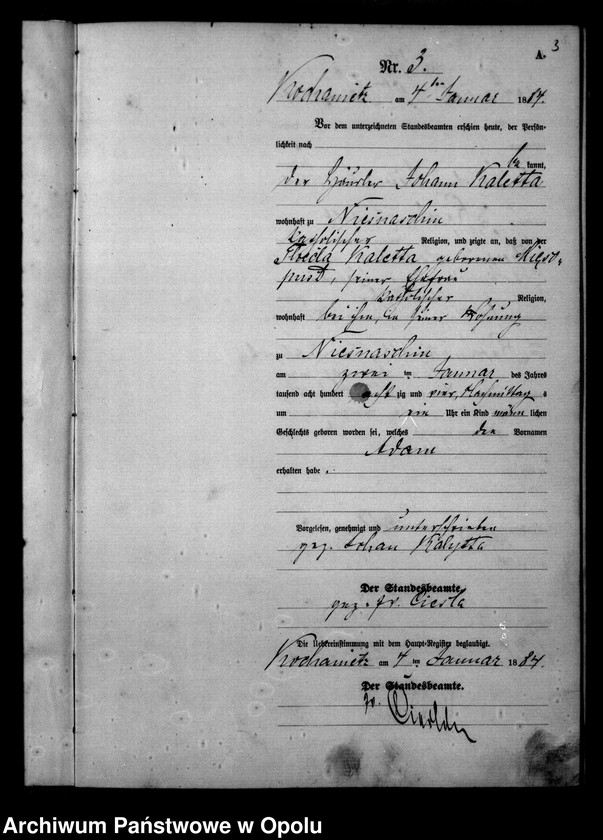 3
A.
Nr. 3.
Kochanietz am 4ten Januar 1884.
Vor dem unterzeichneten Standesbeamten erschien heute, der Persön-
lichkeit nach
be kannt,
der Häusler Johann Kaletta
wohnhaft zu Niesnaschin
katholischer Religion, und zeigte an, daß von der
Kaletta geborenen
seiner Ehefrau
katholischer Religion,
wohnhaft bei ihm, in seiner Wohnung
zu Niesnaschin
am zwei ten Januar des Jahres
tausend acht hundert acht zig und vier, Nachmittag s
um ein Uhr ein Kind männ lichen
Geschlechts geboren worden sei, welches den Vornamen
Adam
erhalten habe.
Vorgelesen, genehmigt und unterschrieben
gez. Johan Kalytta
Der Standesbeamte.
gez. fr. Ciesla
Die Uebereinstimmung mit dem Haupt-Register beglaubigt.
Kochanietz am 4 ten Januar 1884.
Der Standesbeamte.
fr. Ciesla
Archiwum Państwowe w Opolu